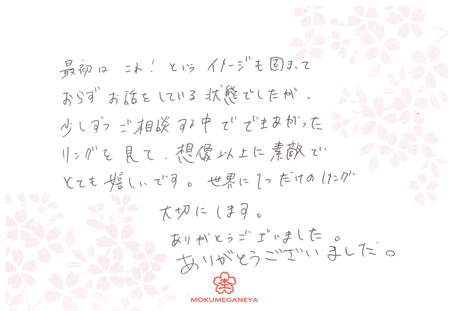 最初は これ！というイメージも固まって
おらず お話をしている状態でしたが、
少しずつ ご相談する中で できあがった
リングを見て、想像以上に素敵で
とても嬉しいです。世界に1つだけのリング
大切にします。
ありがとうございました。
ありがとうございました。
MOKUMEGANEYA